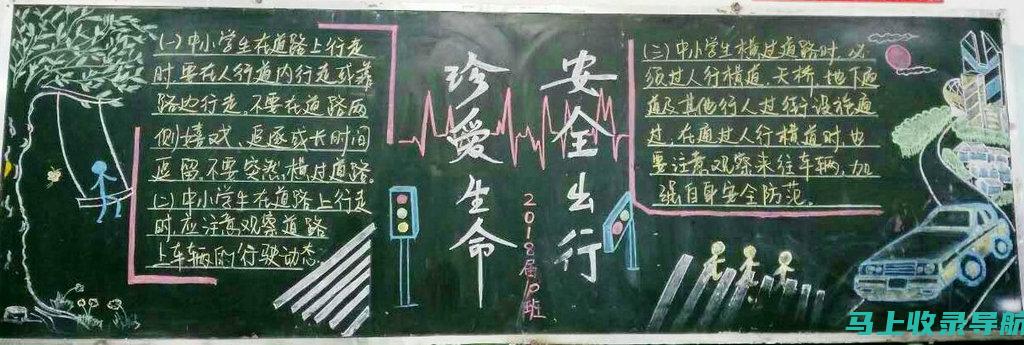 (一)中小学生在道路上行走
时要在人行道内行走或靠
路边行走。不要在道路两
侧嬉戏、追逐或长时间
逗留,不要突然横过道路。
(二)中小学生在道路上行走
时,应注意观察道路
上车辆的行驶动态。
珍爱生命
安全出行
2018届10班
(三)中小学生横过道路时,必
须过人行横道、天桥、地下通
道及其他行人过街设施通
过,在通过人行横道时,也
要注意观察来往车辆,加
强自身安全防范。
马上收录导航